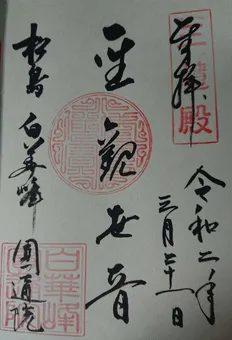 奉拝
令和二年
三月二十一日
聖観世音
松島 白華峰 圓通院
白華峰